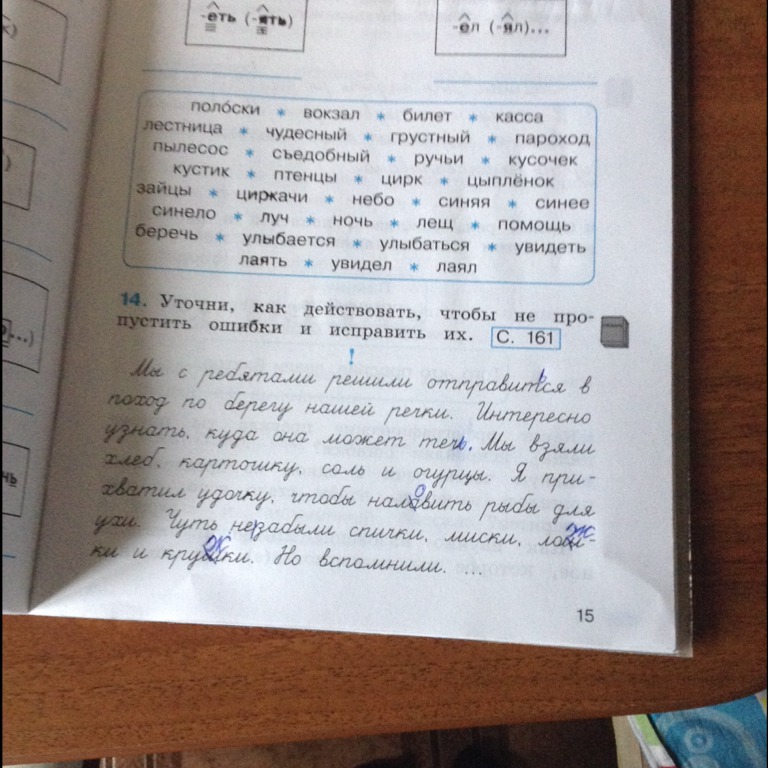 -еть (-ять)
-ел (-ял)...
полóски * вокзал * билет * касса
лестница * чудесный * грустный * пароход
пылесос * съедобный * ручьи * кусочек
кустик * птенцы * цирк * цыплёнок
зайцы * циркачи * небо * синяя * синее
синело * луч * ночь * лещ * помощь
беречь * улыбается * улыбаться * увидеть
лаять * увидел * лаял
14. Уточни, как действовать, чтобы не про-
пустить ошибки и исправить их. С. 161
!
Мы с ребятами решили отправиться в
поход по берегу нашей речки. Интересно
узнать, куда она может течь. Мы взяли
хлеб, картошку, соль и огурцы. Я при-
хватил удочку, чтобы наловить рыбы для
ухи. Чуть не забыли спички, миски, лож-
ки и кружки. Но вспомнили. ...
15